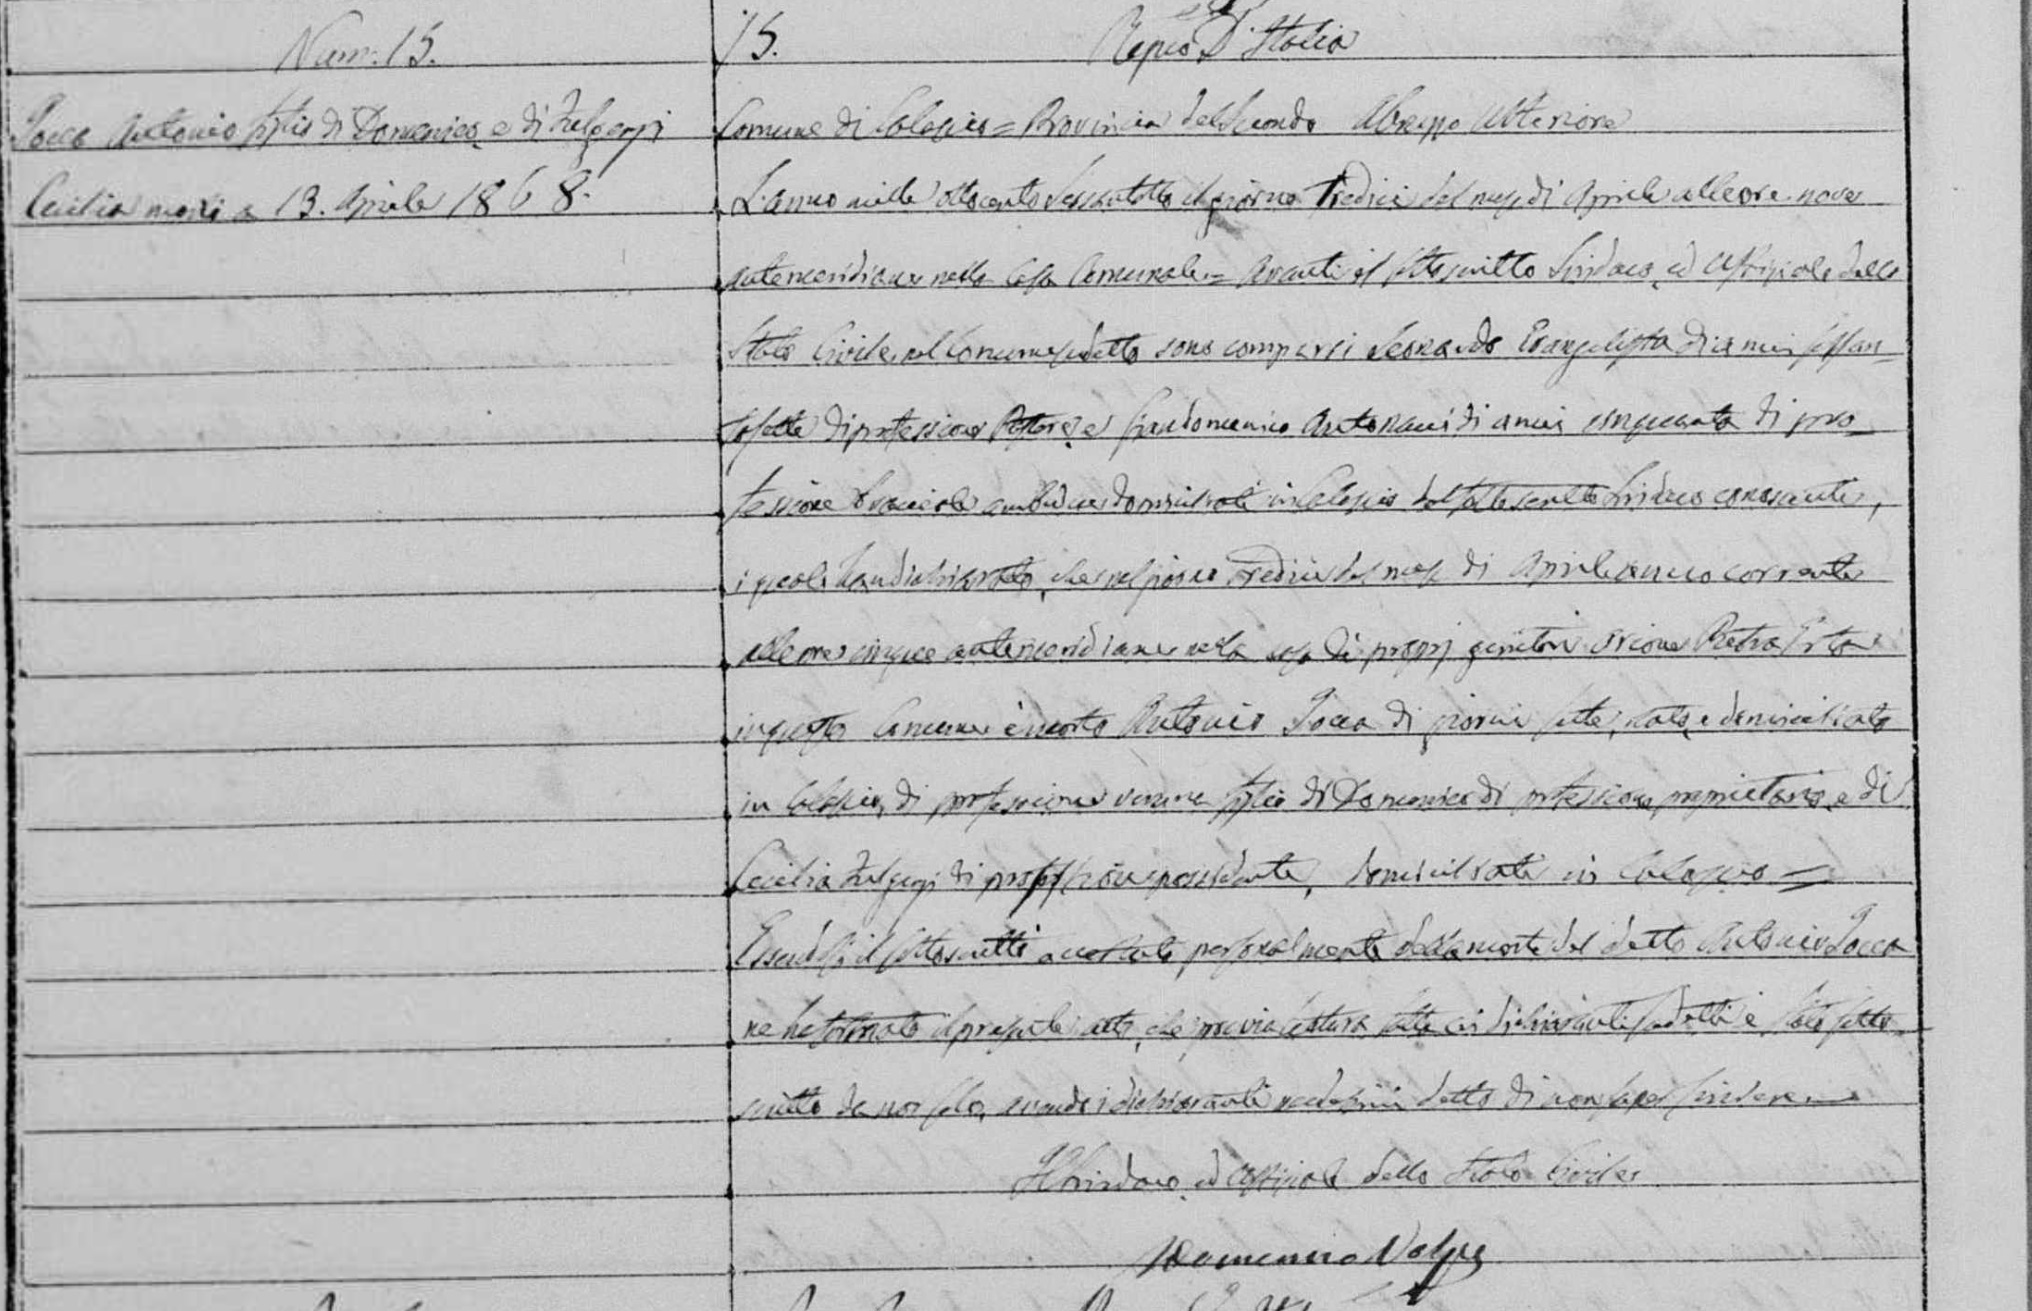 Num: 15.
Tocca Antonio figlio di Domenico, e di Fulgenzi
Cecilia morì a 13. Aprile 1868.
15.
Regno D'Italia
Comune di Calascio = Provincia del Secondo Abruzzo Ulteriore
L'anno mille ottocento sessantotto il giorno Tredici del mese di Aprile alle ore nove
antemeridiane nella Casa Comunale = Avanti il sottoscritto Sindaco, ed Uffiziale dello
Stato Civile nel Comune sudetto sono comparsi Leonardo Evangelista di anni sessan-
tasette di professione Pastore, e Giandomenico Antonacci di anni cinquanta di pro-
fessione bracciale ambidue domiciliati in Calascio dal sottoscritto Sindaco conosciuti,
i quali han dichiarato, che nel giorno tredici del mese di Aprile anno corrente
alle ore cinque antemeridiane nella casa di proprj genitori rione Pietra
in questo Comune è morto Antonio Tocca di giorni sette, nato, e domiciliato
in Calascio, di professione veruna figlio di Domenico di professione proprietario, e di
Cecilia Fulgenzi di professione possidente, domiciliati in Calascio =
Essendosi il sottoscritto accertato personalmente della morte del detto Antonio Tocca
ne ha formato il presente atto, che previa lettura fatta ai dichiaranti sudetti è stato sotto-
scritto da noi solo, avendo i dichiaranti medesimi detto di non saper scrivere.
Il Sindaco, ed Uffiziale dello Stato Civile
Domenico Volpe